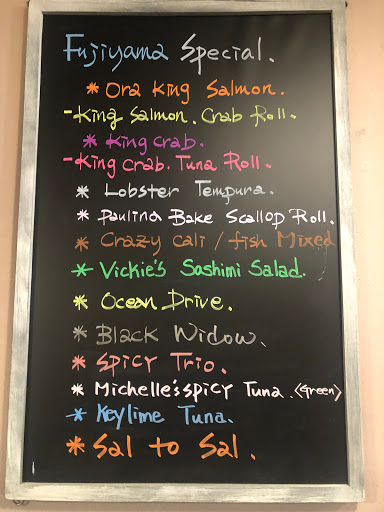 Fujiyama Special.
* Ora King Salmon.
- King Salmon. Crab Roll.
* King Crab.
- King Crab. Tuna Roll.
* Lobster Tempura.
* Paulina Bake Scallop Roll.
* Crazy Cali / fish Mixed
* Vickie's Sashimi Salad.
* Ocean Drive.
* Black Widow.
* Spicy Trio.
* Michelle's Spicy Tuna. <Green>
* Keylime Tuna.
* Sal to Sal.